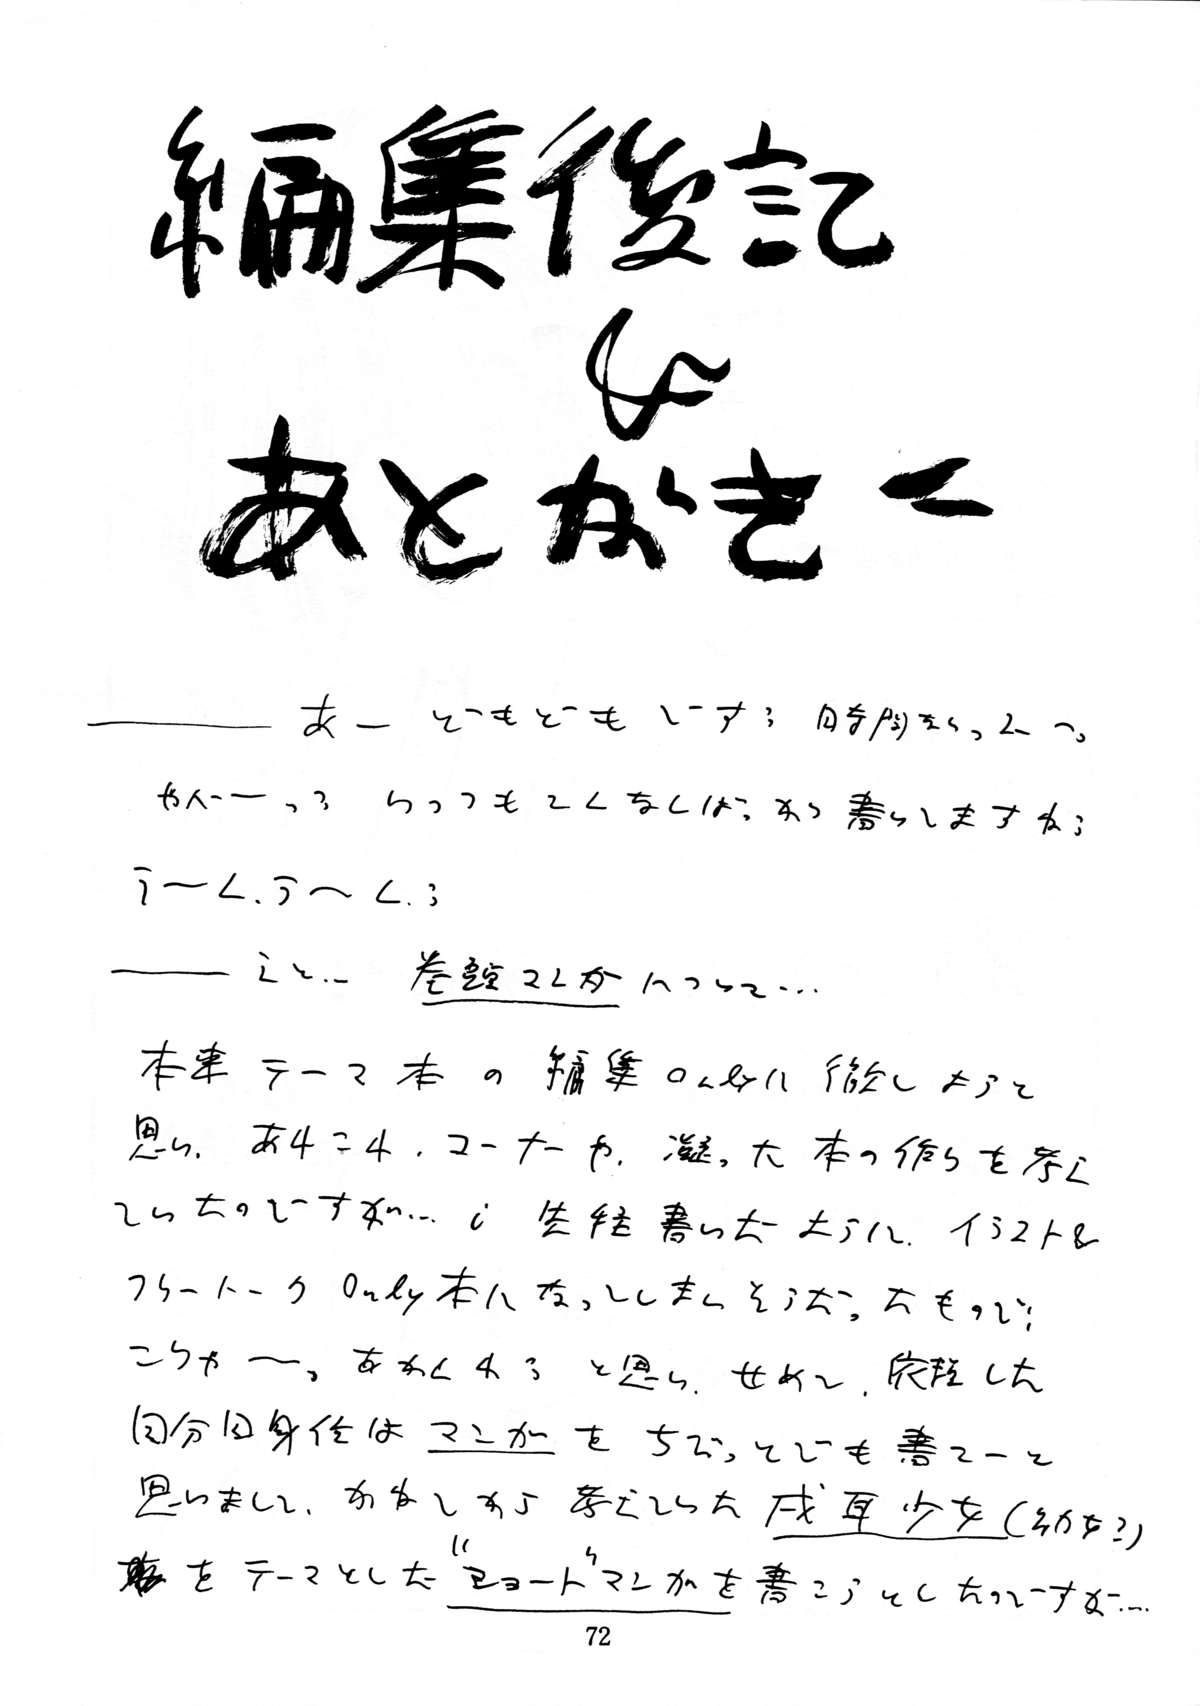 編集後記
&
あとがきー
あー どーもどーもでーすっ 時間ねーっスーっ。
やべーーっっ いっつもこんなんばっかっ書いてますねっ
う〜ん、う〜んっ
えと… 巻頭マンガについて…
本来テーマ本の編集Onlyに徹しようと
思い、あれこれ、コーナーや、凝った本の作りを考え
ていたのですが…; 先程書いたように、イラスト&
フリートークOnly本になってしまいそうだったもので;
こりゃ〜っ。あかんわっ と思い、せめて、依頼した
自分自身位はマンガをちょっとでも書こーと
思いまして、かねてから考えていた 戌耳少女(幼女?)
をテーマとした"ショート"マンガを書こうとしたのですが…
72